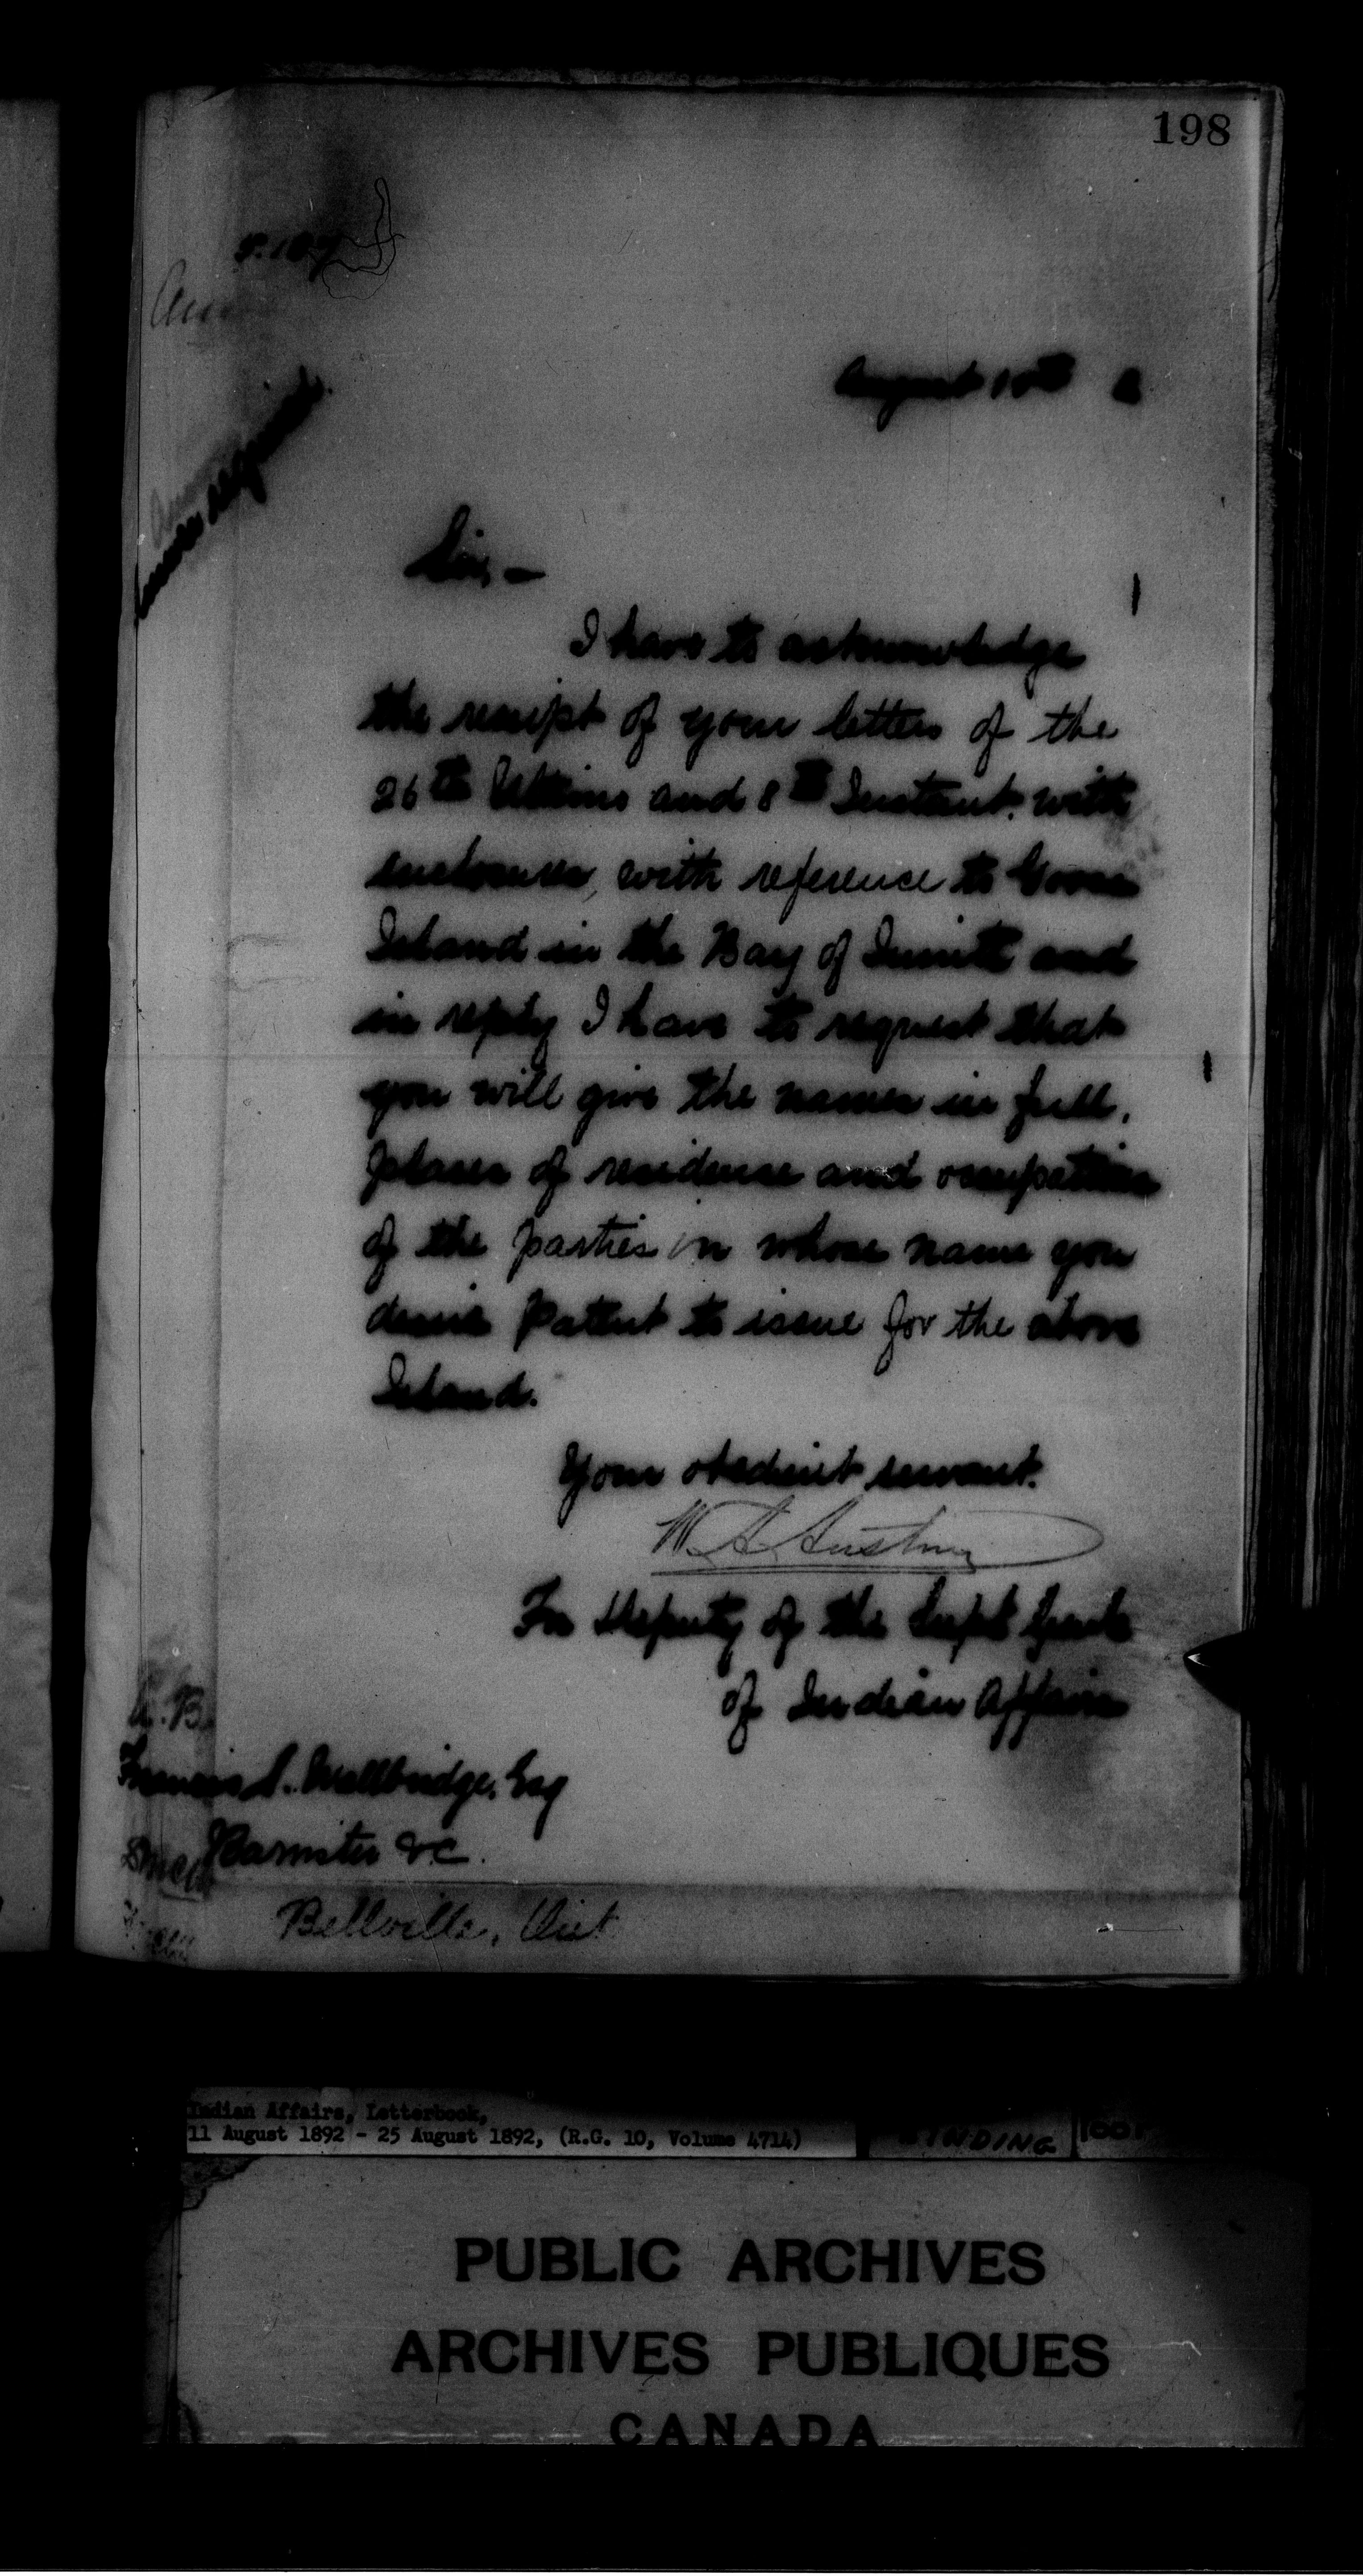 198
August 15th
Sir,—
I have to acknowledge
the receipt of your letters of the
26th Ultimo and 8th Instant, with
enclosures, with reference to Goose
Island in the Bay of Quinté and
in reply I have to request that
you will give the names in full,
places of residence and occupation
of the parties in whose name you
desire Patent to issue for the above
Island.
Your obedient servant.
W. A. Austin
For Deputy of the Supt Genl
of Indian Affairs
Francis S. Wallbridge, Esq
Barrister &c.
Bellville, Ont
Indian Affairs, Letterbook,
11 August 1892 - 25 August 1892, (R.G. 10, Volume 4714)
BINDING
PUBLIC ARCHIVES
ARCHIVES PUBLIQUES
CANADA